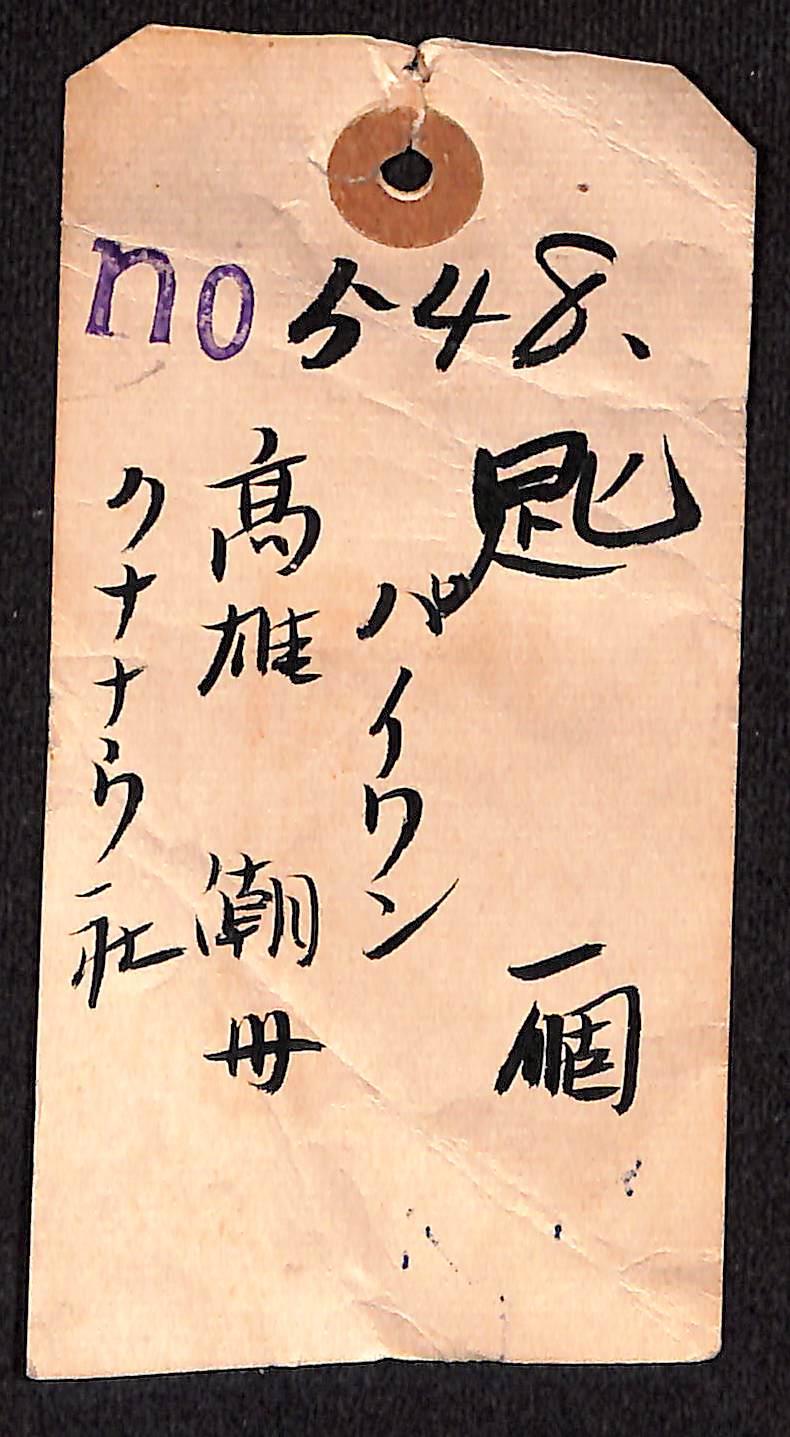 no 548、
匙 一個
パイワン
高雄 潮州
クナナウ社